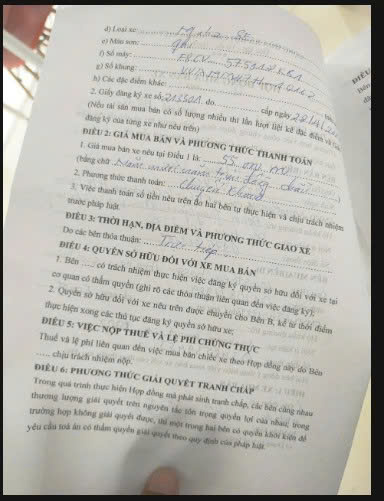 d) Loại xe:
e) Màu sơn: ghi
f) Số máy:
g) Số khung:
h) Các đặc điểm khác:
2. Giấy đăng ký xe số: do cấp ngày
(Nếu tài sản mua bán có số lượng nhiều thì lần lượt liệt kê đặc điểm và
đăng ký của từng xe như nêu trên)
ĐIỀU 2: GIÁ MUA BÁN VÀ PHƯƠNG THỨC THANH TOÁN
1. Giá mua bán xe nêu tại Điều 1 là: 55
(bằng chữ năm triệu đồng
2. Phương thức thanh toán: chuyển khoản
3. Việc thanh toán số tiền nêu trên do hai bên tự thực hiện và chịu trách nhiệm
trước pháp luật.
ĐIỀU 3: THỜI HẠN, ĐỊA ĐIỂM VÀ PHƯƠNG THỨC GIAO XE
Do các bên thỏa thuận: Trực tiếp
ĐIỀU 4: QUYỀN SỞ HỮU ĐỐI VỚI XE MUA BÁN
1. Bên ..... có trách nhiệm thực hiện việc đăng ký quyền sở hữu đối với xe tại
cơ quan có thẩm quyền (ghi rõ các thỏa thuận liên quan đến việc đăng ký);
2. Quyền sở hữu đối với xe nêu trên được chuyển cho Bên B, kể từ thời điểm
thực hiện xong các thủ tục đăng ký quyền sở hữu xe;
ĐIỀU 5: VIỆC NỘP THUẾ VÀ LỆ PHÍ CHỨNG THỰC
Thuế và lệ phí liên quan đến việc mua bán chiếc xe theo Hợp đồng này do Bên
..... chịu trách nhiệm nộp.
ĐIỀU 6: PHƯƠNG THỨC GIẢI QUYẾT TRANH CHẤP
Trong quá trình thực hiện Hợp đồng mà phát sinh tranh chấp, các bên cùng nhau
thương lượng giải quyết trên nguyên tắc tôn trọng quyền lợi của nhau; trong
trường hợp không giải quyết được, thì một trong hai bên có quyền khởi kiện để
yêu cầu toà án có thẩm quyền giải quyết theo quy định của pháp luật.
ĐIỀU